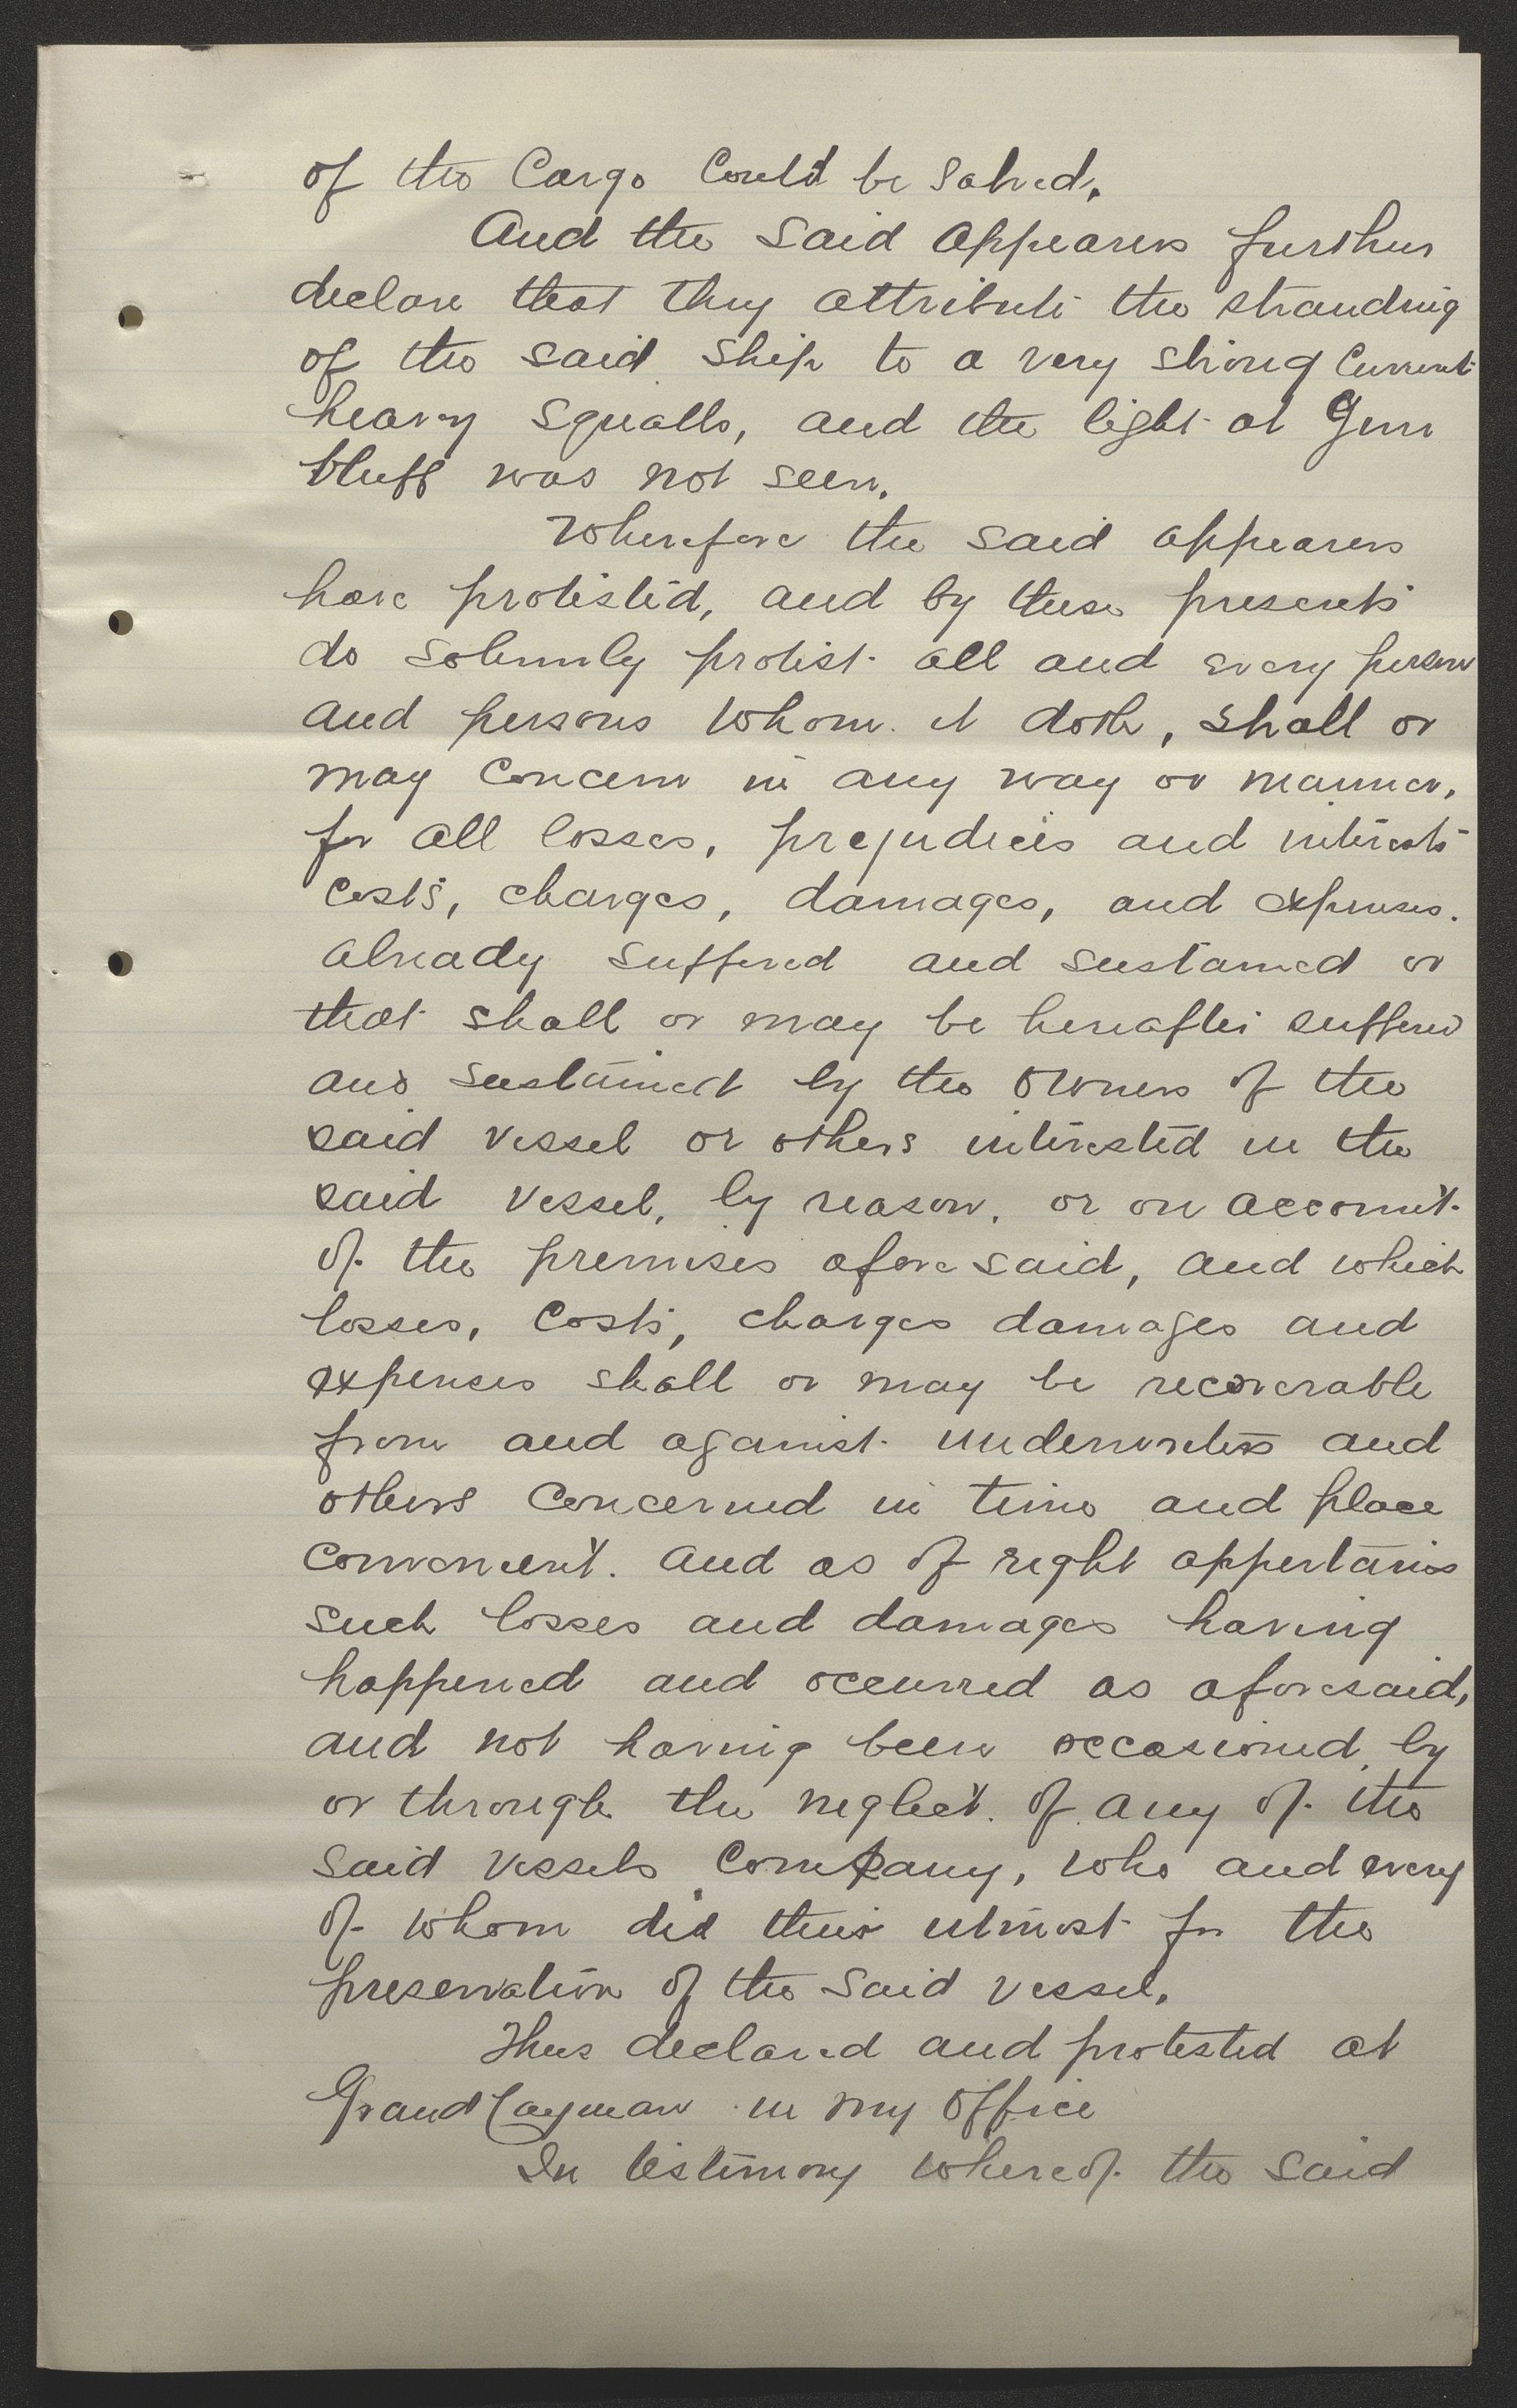 of the Cargo Could be Salved.
And the Said appearers further
declare that they attribute the stranding
of the said Ship to a very strong Current
heavy Squalls, and the light at Gun
bluff was not seen.
Wherefore the said appearers
have protested, and by these presents
do solemnly protest all and every person
and persons whom it doth, shall or
may concern in any way or manner,
for all losses, prejudices and interests
costs, charges, damages, and expenses.
already suffered and sustained or
that shall or may be hereafter suffered
and sustained by the owners of the
said vessel or others interested in the
said vessel, by reason, or on account
of the premises aforesaid, and which
losses, Costs, charges damages and
expenses shall or may be recoverable
from and against underwriters and
others concerned in time and place
convenient. and as of right appertains
such losses and damages having
happened and occurred as aforesaid,
and not having been occasioned by
or through the neglect of any of the
said vessels Company, who and every
of whom did their utmost for the
preservation of the said vessel.
Thus declared and protested at
Grand Cayman in my office
In testimony whereof the Said